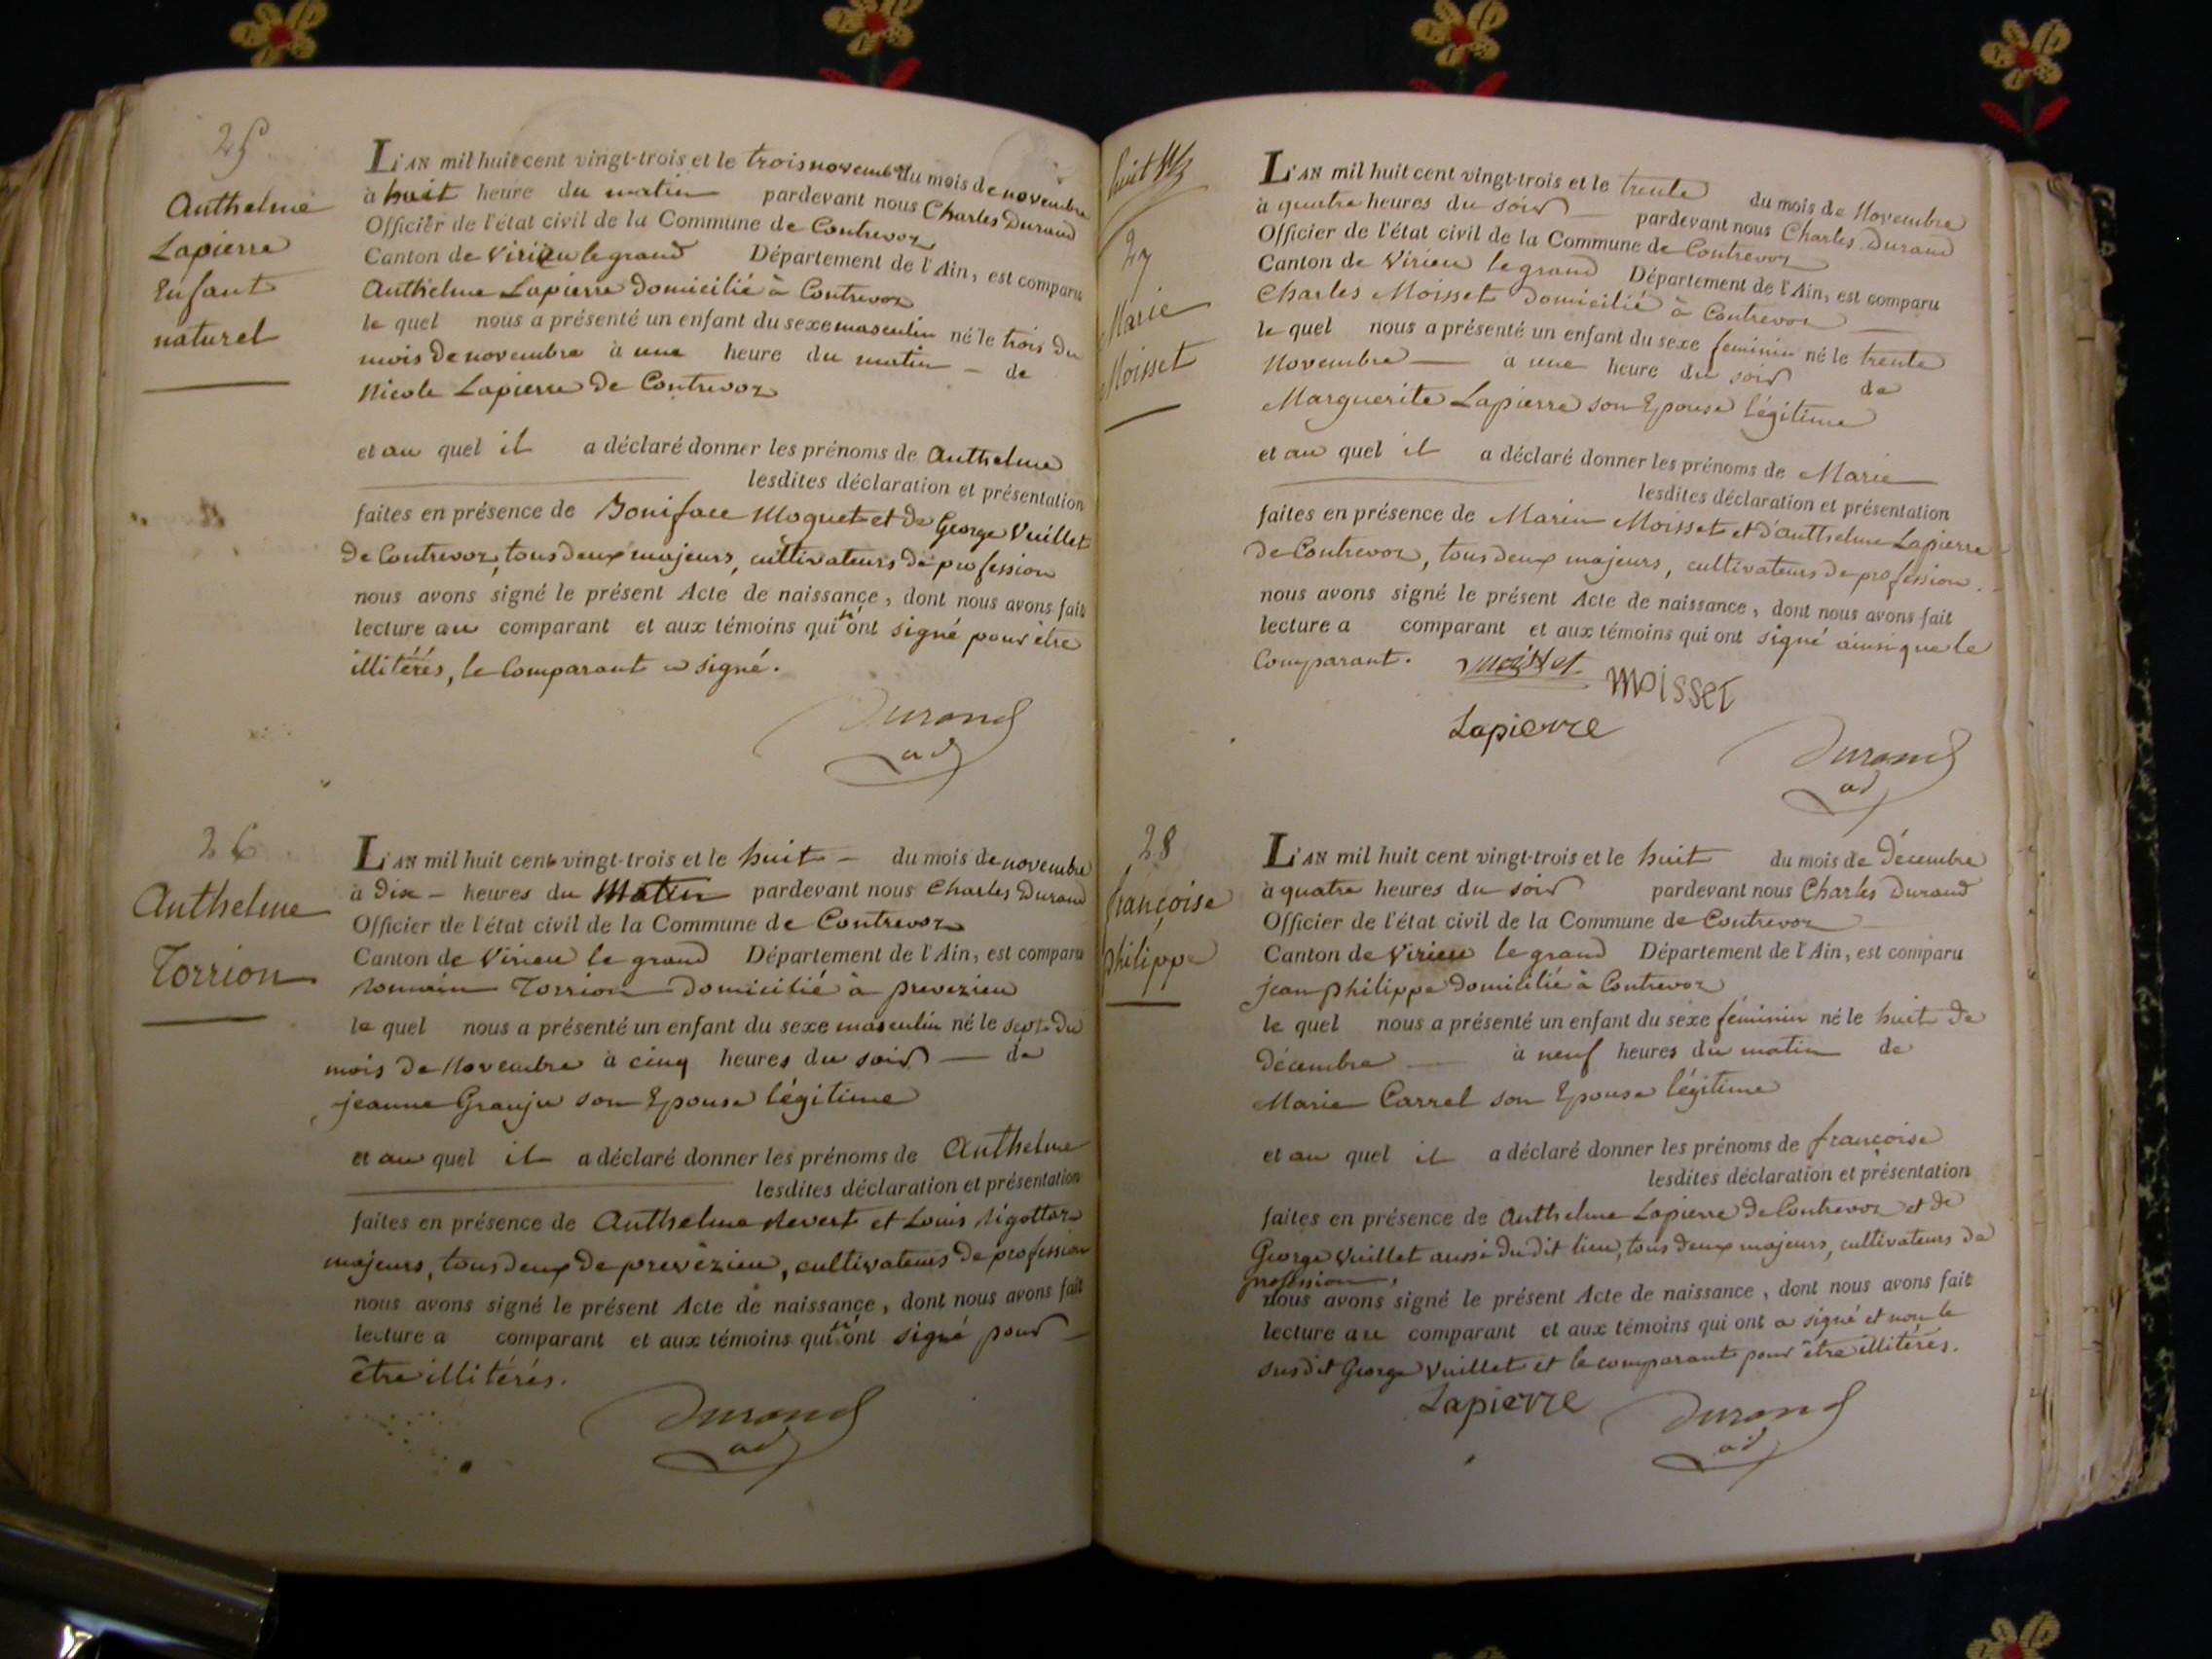 25
Anthelme
Lapierre
Enfant
naturel
L'AN mil huit cent vingt-trois et le trois novembre du mois de novembre
à huit heure du matin pardevant nous Charles Durand
Officier de l'état civil de la Commune de Contrevoz
Canton de Virieu le grand Département de l'Ain, est comparu
Anthelme Lapierre domicilié à Contrevoz
le quel nous a présenté un enfant du sexe masculin né le trois du
mois de novembre à une heure du matin – de
Nicole Lapierre de Contrevoz
et au quel il a déclaré donner les prénoms de Anthelme
lesdites déclaration et présentation
faites en présence de Boniface Moquet et de George Vuillet
de Contrevoz, tous deux majeurs, cultivateurs de profession
nous avons signé le présent Acte de naissance, dont nous avons fait
lecture au comparant et aux témoins qui n'ont signé pour être
illitérés, le Comparant a signé.
Durand
ad
26
Anthelme
Torrion
L'AN mil huit cent vingt-trois et le huit – du mois de novembre
à dix – heures du Matin pardevant nous Charles Durand
Officier de l'état civil de la Commune de Contrevoz
Canton de Virieu le grand Département de l'Ain, est comparu
Torrion domicilié à prevezieu
le quel nous a présenté un enfant du sexe masculin né le sept du
mois de Novembre à cinq heures du soir — de
jeanne Granju son Epouse légitime
et au quel il a déclaré donner les prénoms de Anthelme
lesdites déclaration et présentation
faites en présence de Anthelme Revert et Louis
majeurs, tous deux de prevezieu, cultivateurs de profession
nous avons signé le présent Acte de naissance, dont nous avons fait
lecture a comparant et aux témoins qui n'ont signé pour
être illitérés.
Durand
ad
huit
27
Marie
Moisset
L'AN mil huit cent vingt-trois et le trente du mois de Novembre
à quatre heures du soir — pardevant nous Charles Durand
Officier de l'état civil de la Commune de Contrevoz
Canton de Virieu le grand Département de l'Ain, est comparu
Charles Moisset domicilié à Contrevoz
le quel nous a présenté un enfant du sexe feminin né le trente
Novembre — à une heure du soir de
Marguerite Lapierre son Epouse légitime
et au quel il a déclaré donner les prénoms de Marie
lesdites déclaration et présentation
faites en présence de Marin Moisset et d'anthelme Lapierre
de Contrevoz, tous deux majeurs, cultivateurs de profession.
nous avons signé le présent Acte de naissance, dont nous avons fait
lecture a comparant et aux témoins qui ont signé ainsi que le
Comparant. moisset moisset
Lapierre
Durand
ad
28
françoise
philippe
L'AN mil huit cent vingt-trois et le huit du mois de Décembre
à quatre heures du soir pardevant nous Charles Durand
Officier de l'état civil de la Commune de Contrevoz
Canton de Virieu le grand Département de l'Ain, est comparu
jean philippe domicilié à Contrevoz
le quel nous a présenté un enfant du sexe féminin né le huit de
décembre — à neuf heures du matin de
Marie Carrel son Epouse légitime
et au quel il a déclaré donner les prénoms de françoise
lesdites déclaration et présentation
faites en présence de Anthelme Lapierre de Contrevoz et de
George Vuillet aussi dudit lieu, tous deux majeurs, cultivateurs de
profession,
nous avons signé le présent Acte de naissance, dont nous avons fait
lecture au comparant et aux témoins qui ont a signé et non le
susdit George Vuillet et le comparant pour être illitérés.
Lapierre Durand
ad